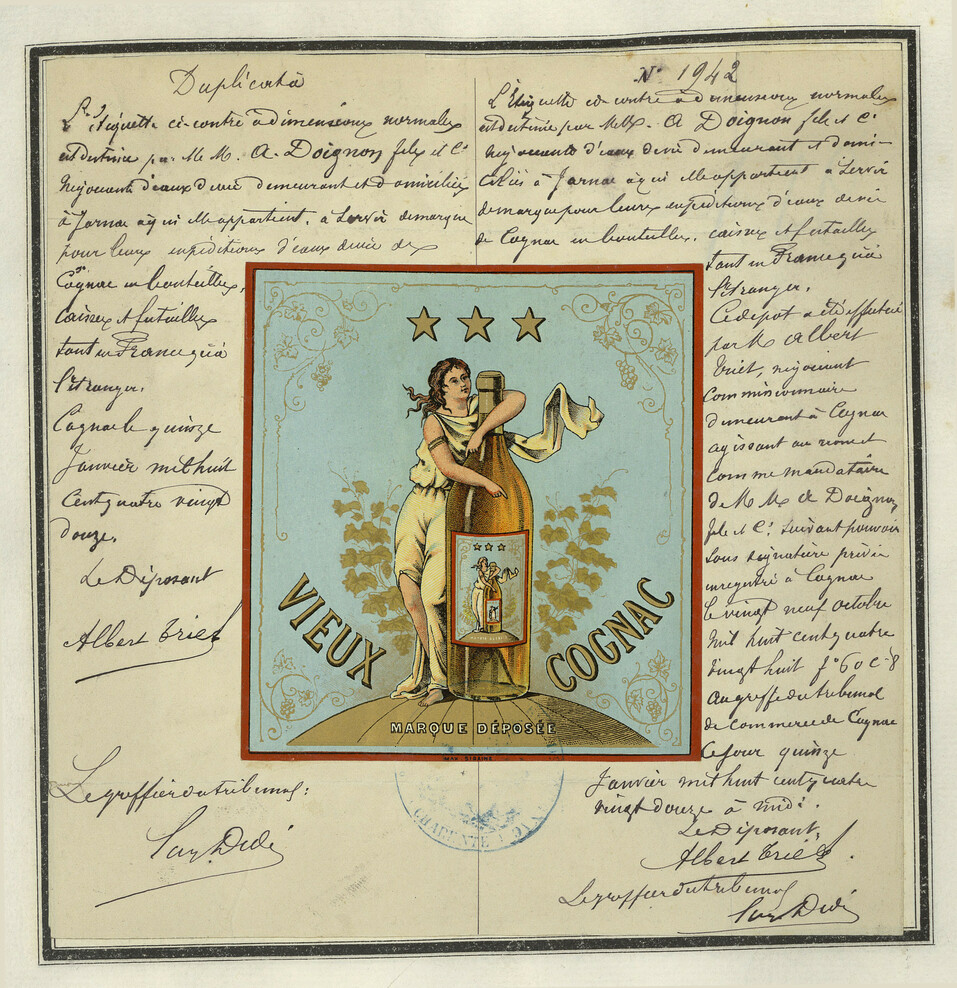 Duplicata
L'Etiquette ci-contre à dimensions normales
est destinée par M M. A. Doignon fils et Cie
Négociants d'eaux de vie demeurant et domiciliés
à Jarnac à qui elle appartient, à servir de marque
pour leurs expéditions d'eaux de vie de
Cognac en bouteilles,
caisses et futailles
tant en France qu'à
l'étranger.
Cognac le quinze
Janvier mil huit
cent quatre vingt
douze.
Le Déposant
Albert Triet
Le greffier du tribunal:
No 1942
L'Etiquette ci-contre à dimensions normales
est destinée par M M. A Doignon fils et Cie
négociants d'eaux de vie demeurant et domi-
ciliés à Jarnac à qui elle appartient à servir
de marque pour leurs expéditions d'eaux de vie
de Cognac en bouteilles, caisses et futailles
tant en France qu'à
l'étranger.
Ce dépôt a été effectué
par M Albert
Triet, négociant
commissionnaire
demeurant à Cognac
agissant au nom et
comme mandataire
de M M A Doignon
fils et Cie suivant pouvoir
sous signature privée
enregistré à Cognac
le vingt neuf octobre
mil huit cent quatre
vingt huit fo 60 c 8
au greffe du tribunal
de commerce de Cognac
ce jour quinze
Janvier mil huit cent quatre
vingt douze à midi.
Le Déposant,
Albert Triet
Le greffier du tribunal
VIEUX COGNAC
MARQUE DÉPOSÉE
CHARENTE